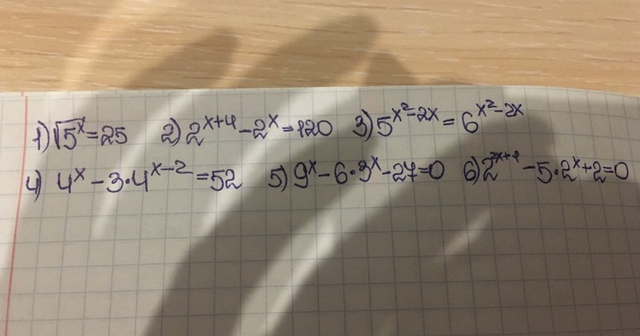 1) √5^x = 25 2) 2^{x+4} - 2^x = 120 3) 5^{x²-2x} = 6^{x²-2x}
4) 4^x - 3·4^{x-2} = 52 5) 9^x - 6·3^x - 27 = 0 6) 2^{2x+1} - 5·2^x + 2 = 0